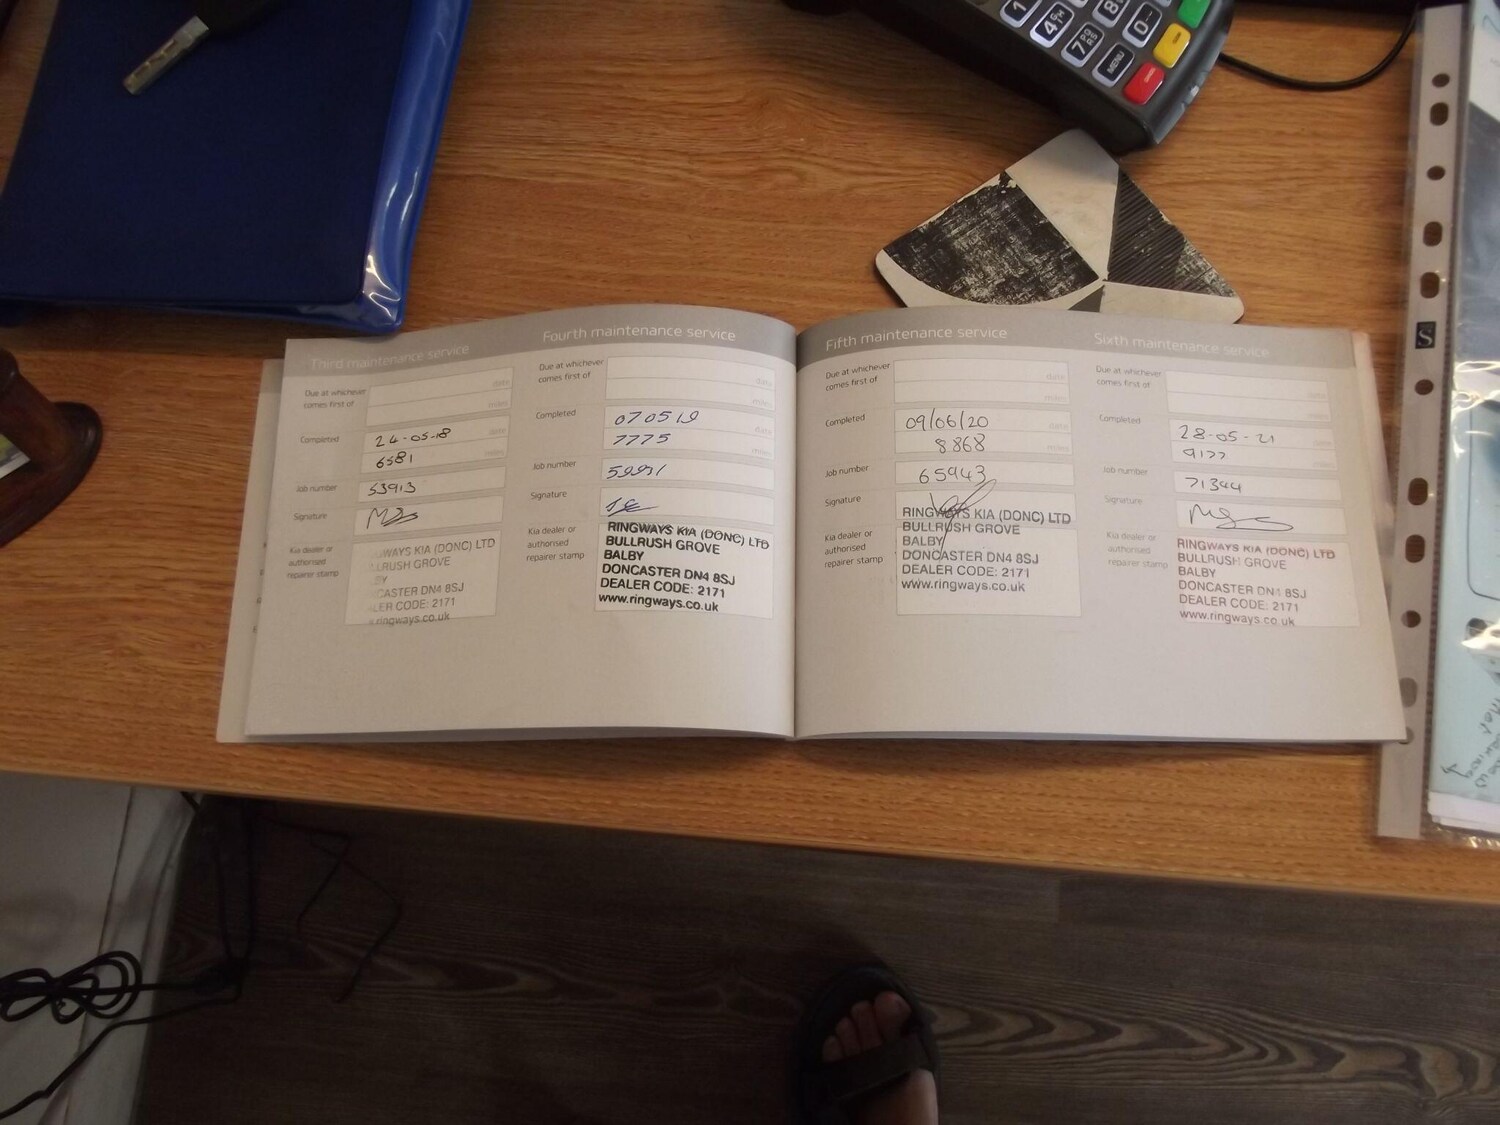 1
4 GHI
7 PQRS
8
0
MENU
Third maintenance service
Due at whichever
comes first of
date
miles
Completed
24-05-18 date
6581 miles
Job number
53913
Signature
Kia dealer or
authorised
repairer stamp
WAYS KIA (DONC) LTD
LLRUSH GROVE
BY
CASTER DN4 8SJ
LER CODE: 2171
ringways.co.uk
Fourth maintenance service
Due at whichever
comes first of
date
miles
Completed
07 05 19 date
7775 miles
Job number
59991
Signature
Kia dealer or
authorised
repairer stamp
RINGWAYS KIA (DONC) LTD
BULLRUSH GROVE
BALBY
DONCASTER DN4 8SJ
DEALER CODE: 2171
www.ringways.co.uk
Fifth maintenance service
Due at whichever
comes first of
date
miles
Completed
09/06/20 date
8868 miles
Job number
65943
Signature
Kia dealer or
authorised
repairer stamp
RINGWAYS KIA (DONC) LTD
BULLRUSH GROVE
BALBY
DONCASTER DN4 8SJ
DEALER CODE: 2171
www.ringways.co.uk
Sixth maintenance service
Due at whichever
comes first of
date
miles
Completed
28-05-21
9177
Job number
71344
Signature
Kia dealer or
authorised
repairer stamp
RINGWAYS KIA (DONC) LTD
BULLRUSH GROVE
BALBY
DONCASTER DN4 8SJ
DEALER CODE: 2171
www.ringways.co.uk
S